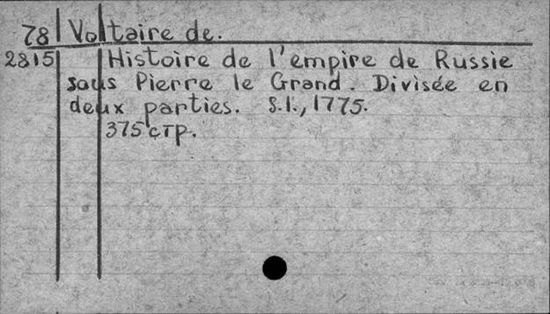 78 Voltaire de.
2815 Histoire de l'empire de Russie
sous Pierre le Grand. Divisée en
deux parties. S.l., 1775.
375 стр.